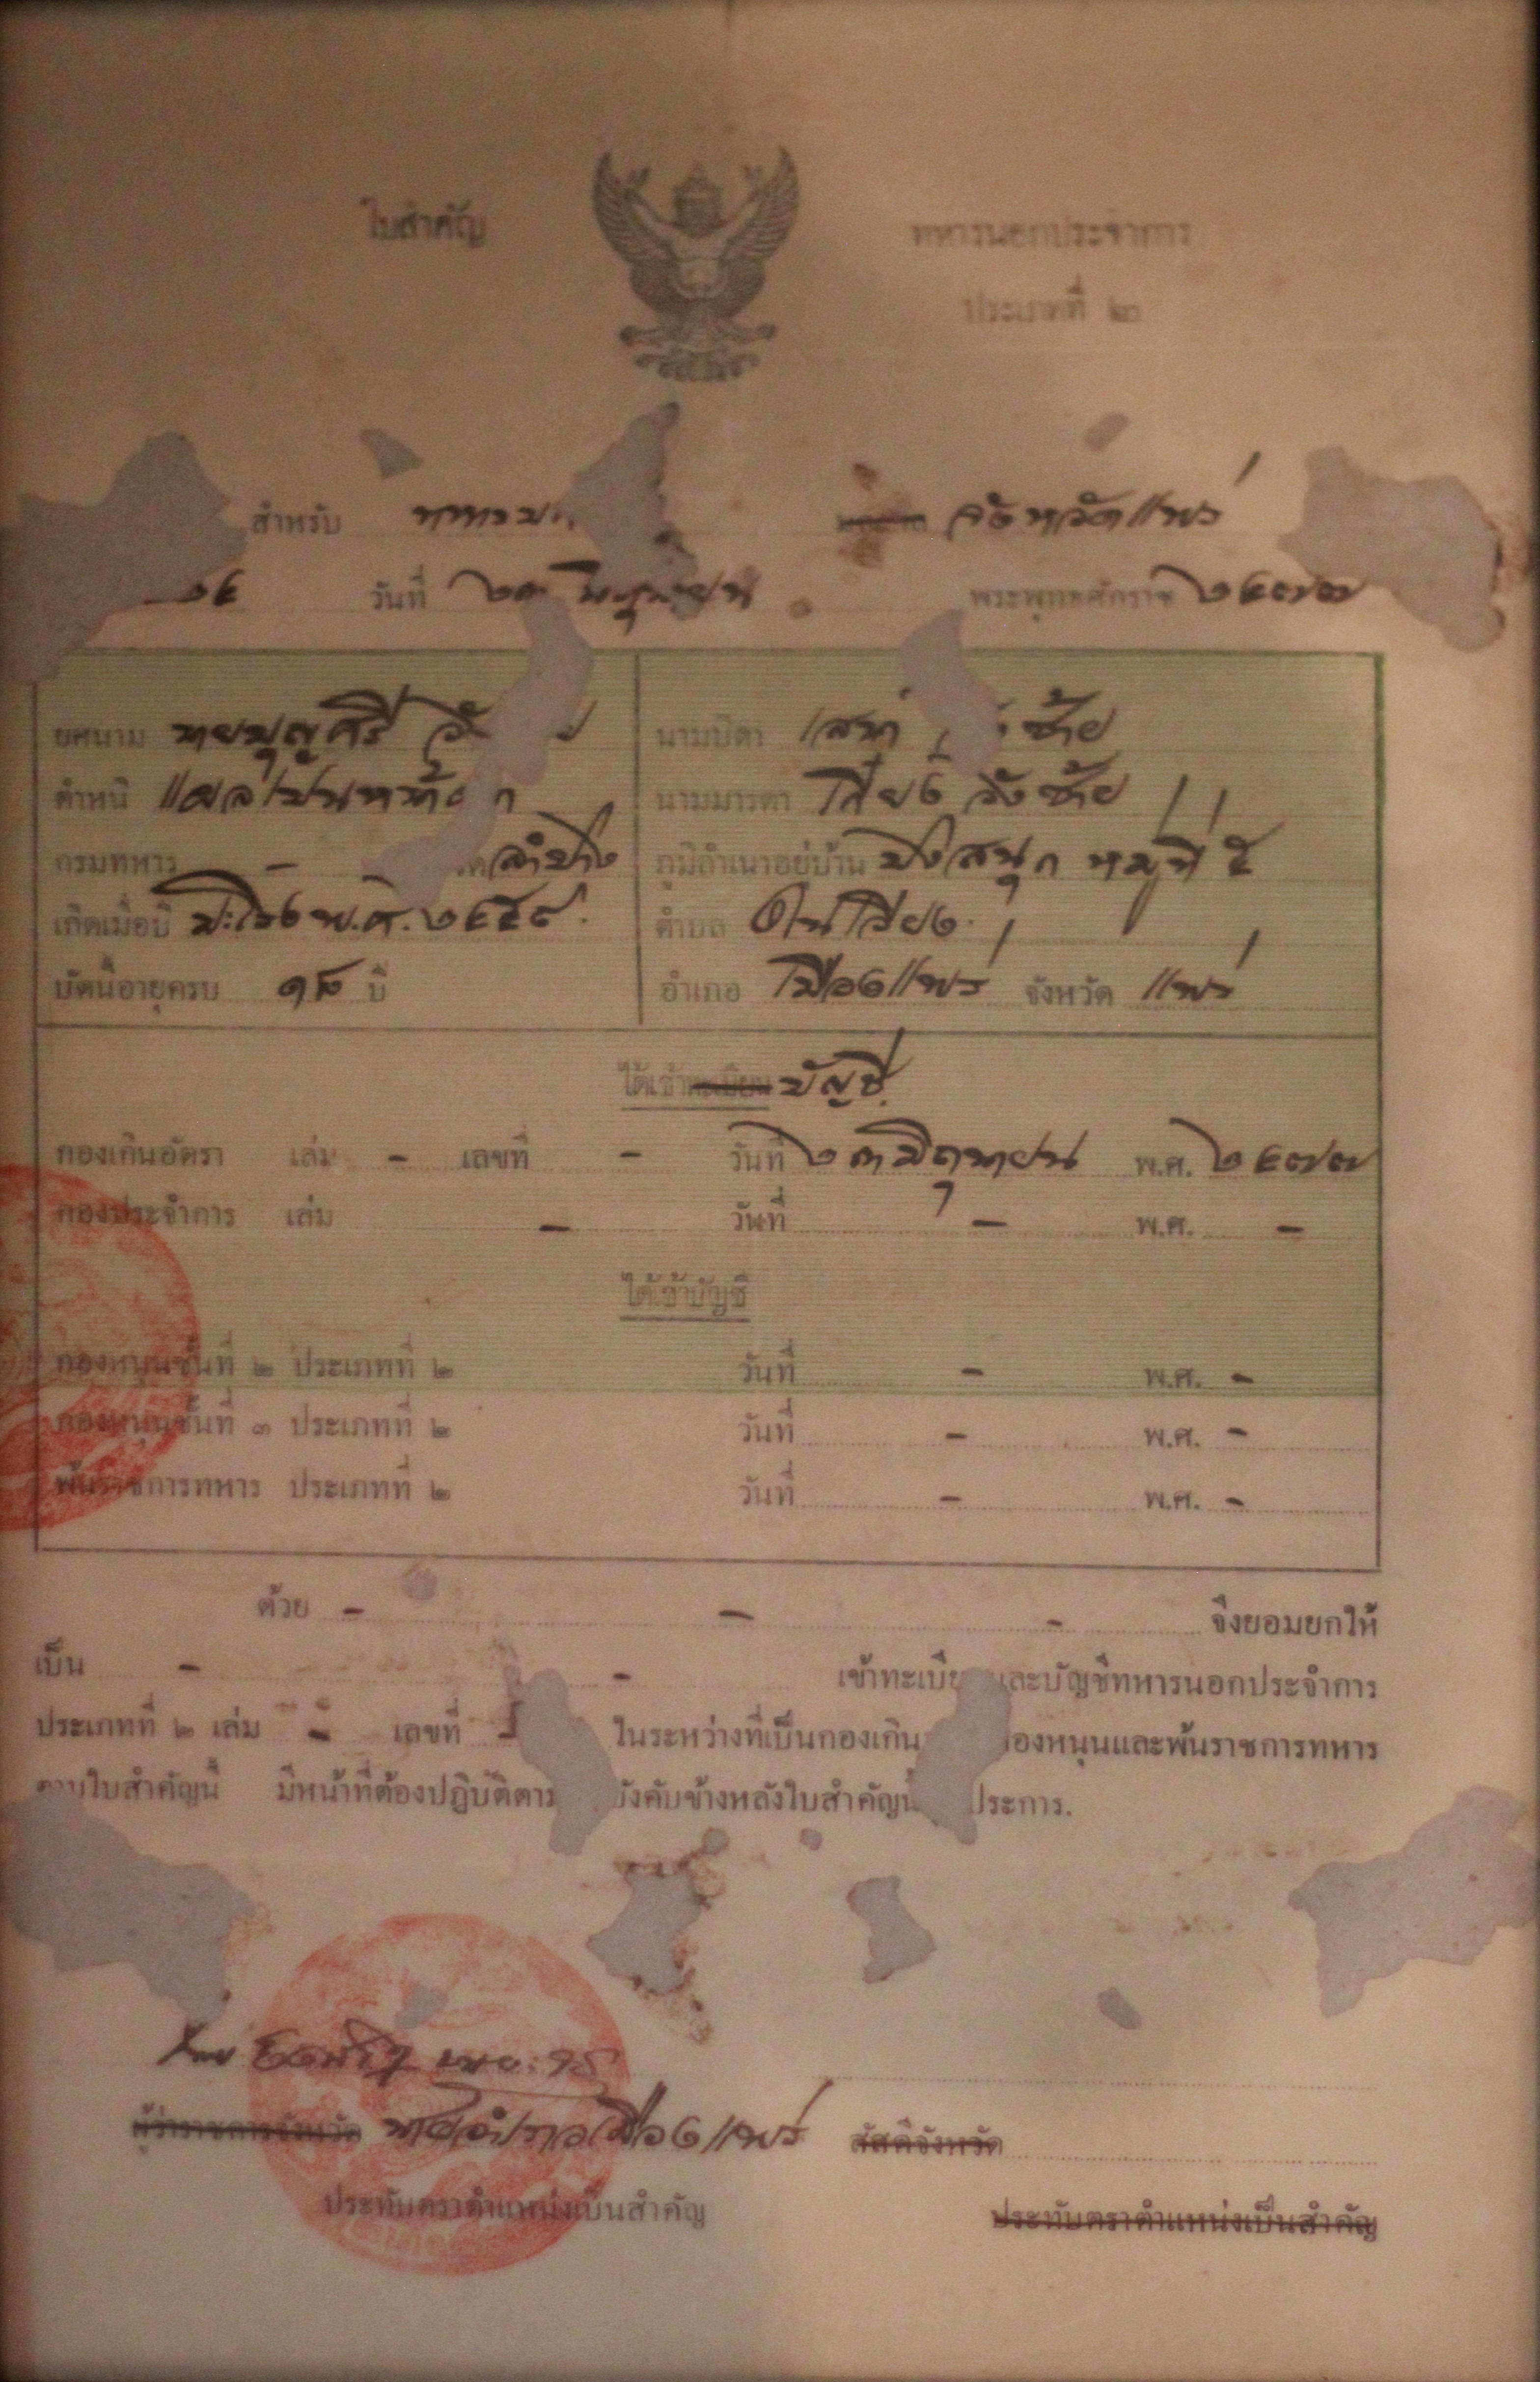 ใบสำคัญ ทหารนอกประจำการ
ประเภทที่ ๒
สำหรับ จังหวัดแพร่
วันที่ ๒๓ มิถุนายน พระพุทธศักราช ๒๔๗๗
ยศนาม นายบุญศรี นามบิดา เสาร์ ซ้าย
ตำหนิ แผลเป็นหน้า นามมารดา เฮียง วังซ้าย
กรมทหาร - ลำปาง ภูมิลำเนาอยู่บ้าน ปงสนุก หมู่ที่ ๕
เกิดเมื่อปี มะโรง พ.ศ. ๒๔๕๙ ตำบล ในเวียง
บัดนี้อายุครบ ๑๘ ปี อำเภอ เมืองแพร่ จังหวัด แพร่
ได้เข้าทะเบียน บัญชี
กองเกินอัตรา เล่ม - เลขที่ - วันที่ ๒๓ มิถุนายน พ.ศ. ๒๔๗๗
กองประจำการ เล่ม - วันที่ - พ.ศ. -
ได้เข้าบัญชี
กองหนุนชั้นที่ ๒ ประเภทที่ ๒ วันที่ - พ.ศ. -
กองหนุนชั้นที่ ๓ ประเภทที่ ๒ วันที่ - พ.ศ. -
พ้นราชการทหาร ประเภทที่ ๒ วันที่ - พ.ศ. -
ด้วย - - - จึงยอมยกให้
เป็น - - เข้าทะเบียนและบัญชีทหารนอกประจำการ
ประเภทที่ ๒ เล่ม - เลขที่ - ในระหว่างที่เป็นกองเกิน กองหนุนและพ้นราชการทหาร
ตามใบสำคัญนี้ มีหน้าที่ต้องปฏิบัติตาม บังคับข้างหลังใบสำคัญนี้ ประการ.
ผู้ว่าราชการจังหวัด นายอำเภอเมืองแพร่ สัสดีจังหวัด
ประทับตราตำแหน่งเป็นสำคัญ ประทับตราตำแหน่งเป็นสำคัญ